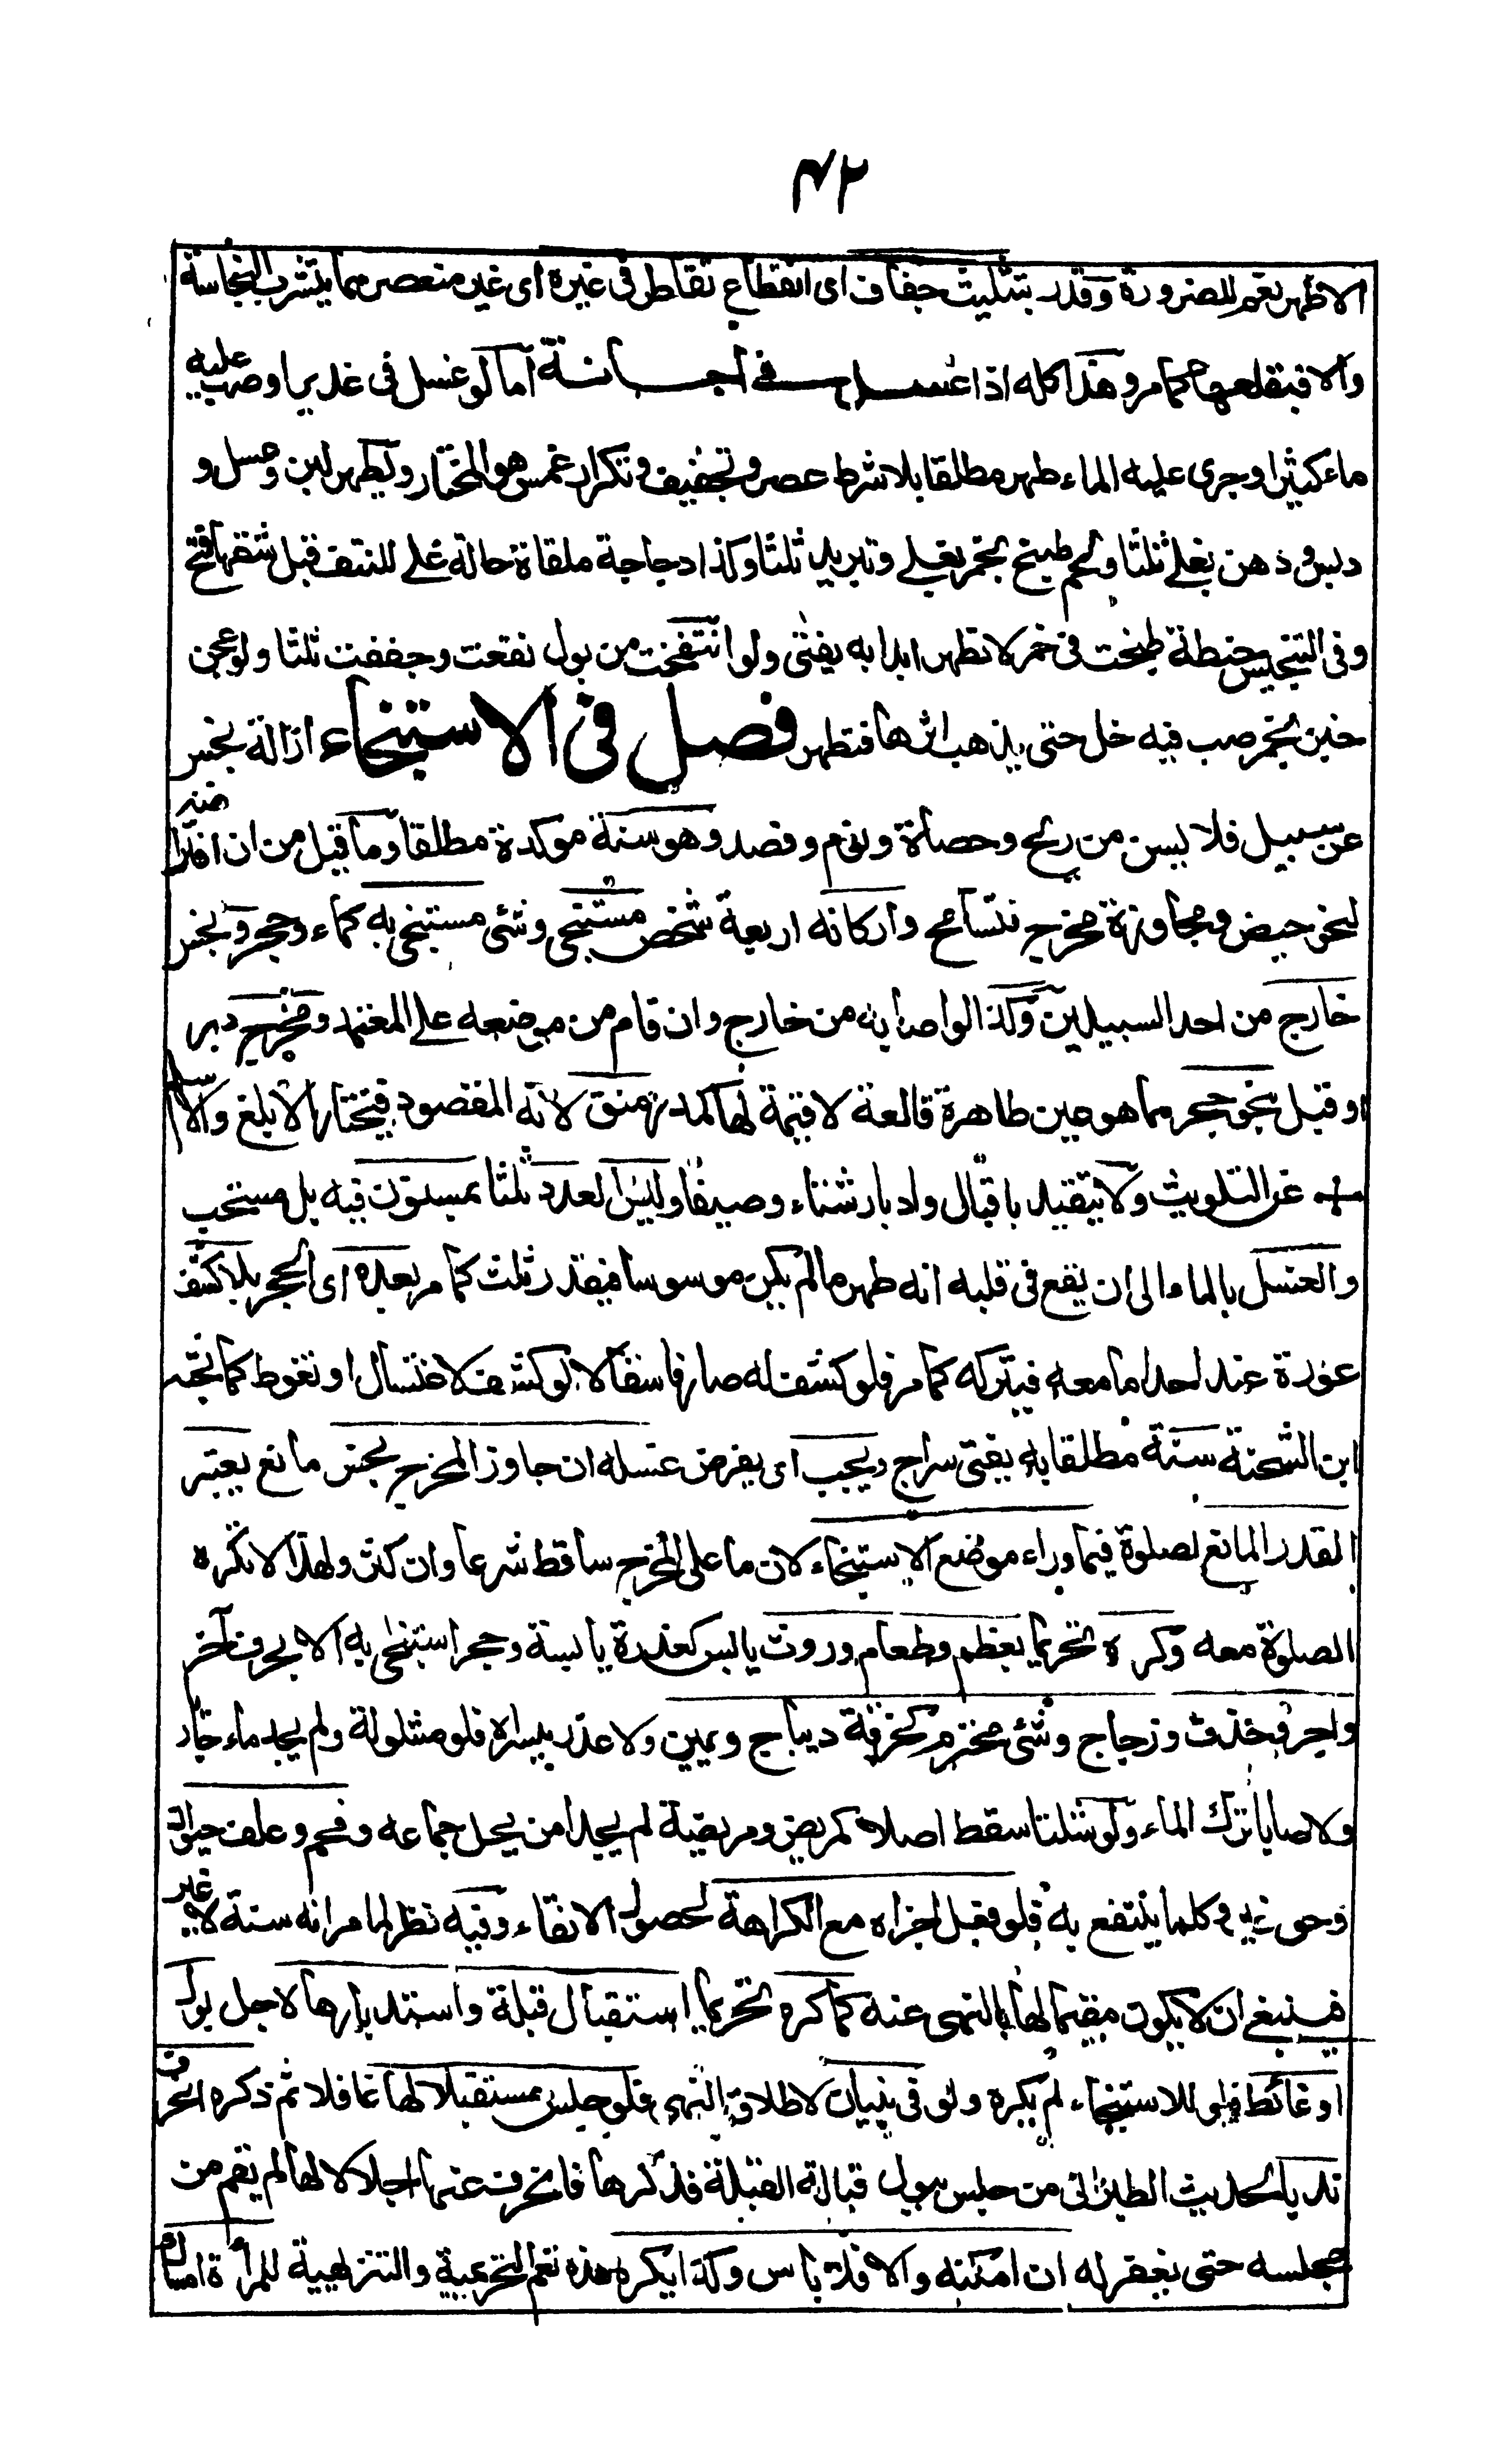 ٤٢
الاظهر نعم للضرورة وقدر بتثليث جفاف اى انقطاع تقاطر فى غيره اى غير منعصر مما يتشرب النجاسة
والا فبقلعها كما مر وهذا كله اذا غسل فى اجانة اما لو غسل فى غدير او صب عليه
ماء كثير او جرى عليه الماء طهر مطلقا بلا شرط عصر وتجفيف وتكرار غمس هو المختار ويطهر لبن وعسل و
دبس ودهن بغلى ثلثا ولحم طبخ بخمر بغلى وتبريد ثلثا وكذا دجاجة ملقاة حالة غلى للنتف قبل شقها فتح
وفى التجنيس حنطة طبخت فى خمر لا تطهر ابدا به يفتى ولو انتفخت من بول نقعت وجففت ثلثا ولو عجن
خبز بخمر صب فيه خل حتى يذهب اثرها فتطهر فصل فى الاستنجاء ازالة نجس
عن سبيل فلا يسن من ريح وحصاة ونوم وفصد وهو سنة موكدة مطلقا وما قيل من ان افتراضه
لنحو حيض ومجاوزة مخرج فتسامح واركانه اربعة شخص مستنجى وشئ مستنجى به كماء وحجر ونجس
خارج من احد السبيلين وكذا لو اصابه من خارج وان قام من موضعه على المعتمد ومخرج دبر
او قبل بنحو حجر مما هو عين طاهرة قالعة لا قيمة لها كمدر منق لانه المقصود فيختار الابلغ والاسلم
عن التلويث ولا يتقيد باقبال وادبار شتاء وصيفا وليس العدد ثلثا بمسنون فيه بل مستحب
والغسل بالماء الى ان يقع فى قلبه انه طهر مالم يكن موسوسا فيقدر بثلث كما مر بعده اى الحجر بلا كشف
عورة عند احد اما معه فيتركه كما مر فلو كشف له صار فاسقا لا لو كشف لاغتسال او تغوط كما بحثه
ابن الشحنة سنة مطلقا به يفتى سراج ويجب اى يفرض غسله ان جاوز المخرج نجس مانع يعتبر
القدر المانع لصلوة فيما وراء موضع الاستنجاء لان ما على المخرج ساقط شرعا وان كثر ولهذا لا تكره
الصلوة معه وكره تحريما بعظم وطعام وروث يابس كعذرة يابسة وحجر استنجى به الا بحرف آخر
واجر وخذف وزجاج وشئ محترم كخرقة ديباج ويمين ولا عذر بيسراه فلو مشلولة ولم يجد ماء جار
ولا صابا ترك الماء ولو شلتا سقط اصلا كمريض ومريضة لم يجدا من يحل جماعه وفحم وعلف حيوان
وحق غير وكل ما ينتفع به فلو فعل اجزاه مع الكراهة لحصول الانقاء وفيه نظر لما مر انه سنة لا غير
فينبغى ان لا يكون مقيما لها بالنهى عنه كما كره تحريما استقبال قبلة واستدبارها لاجل بول
او غائط فلو للاستنجاء لم يكره ولو فى بنيان لاطلاق النهى فلو جلس مستقبلا لها غافلا ثم ذكره انحرف
ندبا لحديث الطبرانى من جلس يبول قبالة القبلة فذكرها فانحرف عنها اجلالا لها لم يقم من
مجلسه حتى يغفر له ان امكنه والا فلا باس وكذا يكره هذه تعم التحريمية والتنزيهية للمرأة امساك